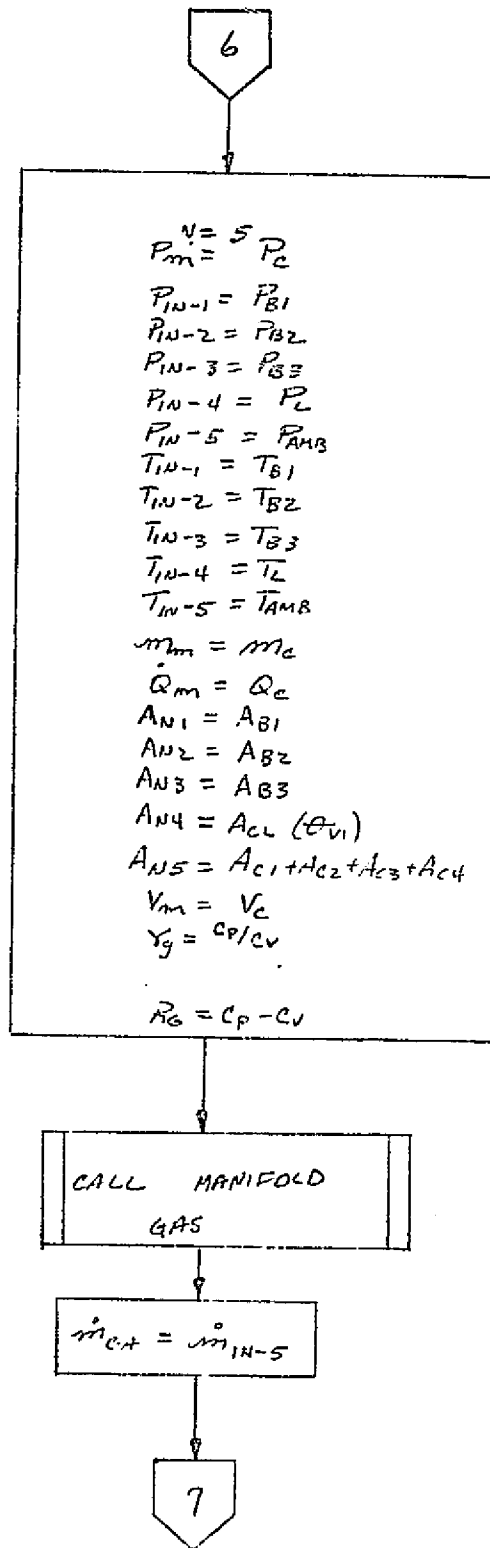 6
N = 5
Pm = Pc
PIN-1 = PB1
PIN-2 = PB2
PIN-3 = PB3
PIN-4 = PL
PIN-5 = PAMB
TIN-1 = TB1
TIN-2 = TB2
TIN-3 = TB3
TIN-4 = TL
TIN-5 = TAMB
mm = mc
Q̇m = Qc
AN1 = AB1
AN2 = AB2
AN3 = AB3
AN4 = ACL (θV1)
AN5 = AC1+AC2+AC3+AC4
Vm = Vc
γg = CP/CV
RG = CP - CV
CALL MANIFOLD
GAS
ṁCA = ṁIN-5
7